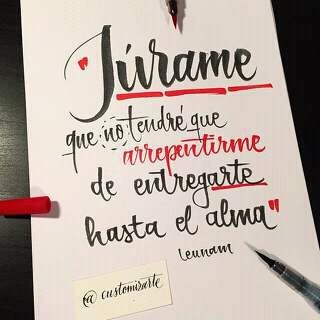 "Júrame
que no tendré que
arrepentirme
de entregarte
hasta el alma"
Leunam
@customisarte